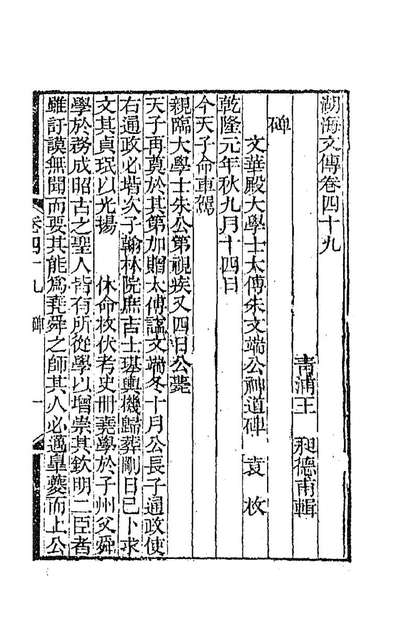 湖海文傳卷四十九
青浦王 昶德甫輯
碑
文華殿大學士太傅朱文端公神道碑 袁 枚
乾隆元年秋九月十四日
今天子命車駕
親臨大學士朱公第視疾又四日公薨
天子再奠於其第加贈太傅諡文端冬十月公長子通政使
右通政必堦次子翰林院庶吉士璂轝機歸葬剛日已卜求
文其貞珉以光揚 休命枚伏考史冊堯學於子州父舜
學於務成昭古之聖人皆有所從學以增崇其欽明二臣者
雖訏謨無聞而要其能爲堯舜之師其人必適臯夔而上公
卷四十九 碑 一